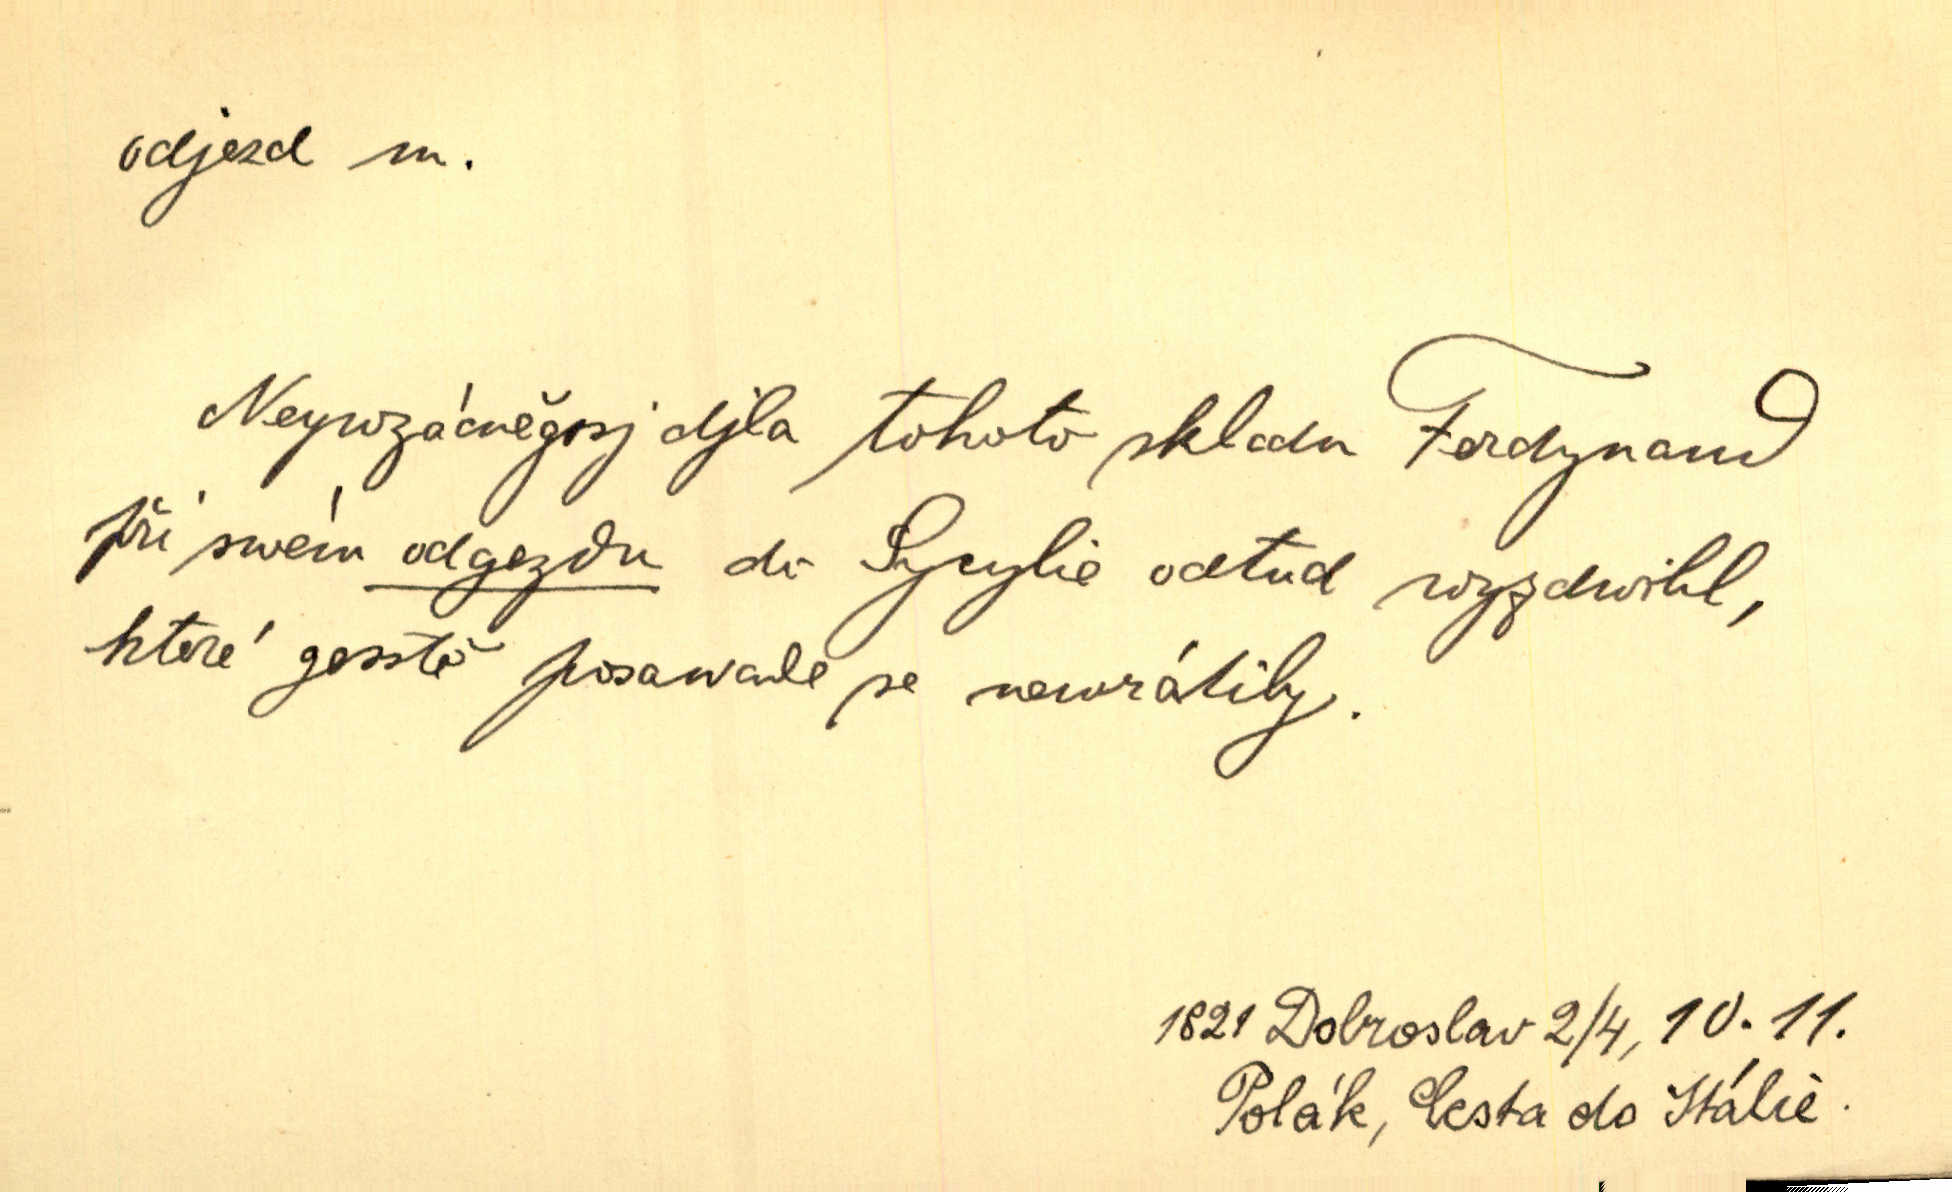 odjezd m.
Neywzácněgssj djla tohoto skladu Ferdynand
při swém odgezdu do Sycylie odtud wyzdwihl,
které gesstě posawade se newrátily.
1821 Dobroslav 2/4, 10. 11.
Polák, Cesta do Itálie.